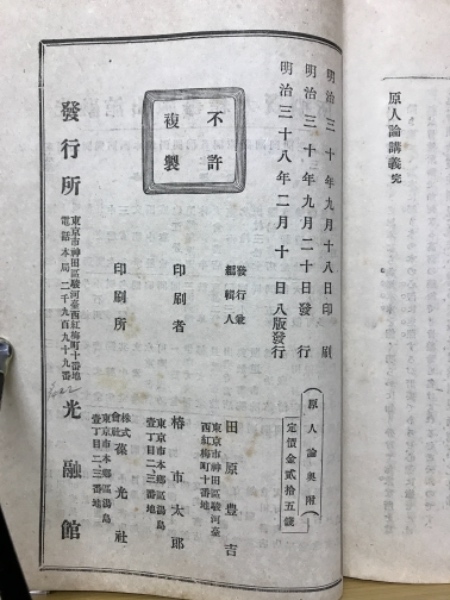 原人論講義完
明治三十年九月十八日印刷
明治三十年九月二十日發行
明治三十八年二月十日八版發行
原人論奧附
定價金貳拾五錢
不許
複製
發行兼
編輯人
田原豊吉
東京市神田區駿河臺
西紅梅町十番地
印刷者
椿市太郎
東京市本鄕區湯島
壹丁目二、三番地
印刷所
株式
會社
光社
東京市本鄕區湯島
壹丁目二、三番地
發行所
東京市神田區駿河臺西紅梅町十番地
電話本局二千九百九十九番
光融館